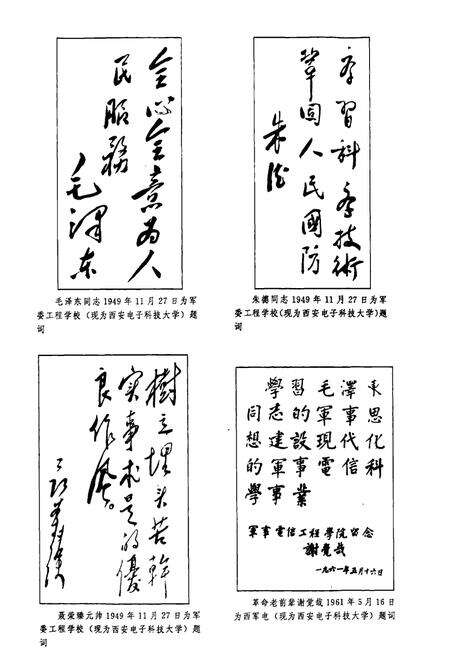 全心全意为人
民服務
毛澤东
毛泽东同志 1949 年 11 月 27 日为军
委工程学校（现为西安电子科技大学）题
词
学習科学技術
鞏固人民國防
朱德
朱德同志 1949 年 11 月 27 日为军
委工程学校(现为西安电子科技大学)题
词
樹立埋头苦幹
实事求是的優
良作風。
聂荣臻元帅 1949 年 11 月 27 日为军
委工程学校（现为西安电子科技大学）题
词
學習毛澤东
同志的軍事思
想建設現代化
的軍事電信科
學事業
軍事電信工程學院留念
謝覺哉
一九六一年五月十六日
革命老前辈谢觉哉 1961 年 5 月 16 日
为西军电（现为西安电子科技大学）题
词